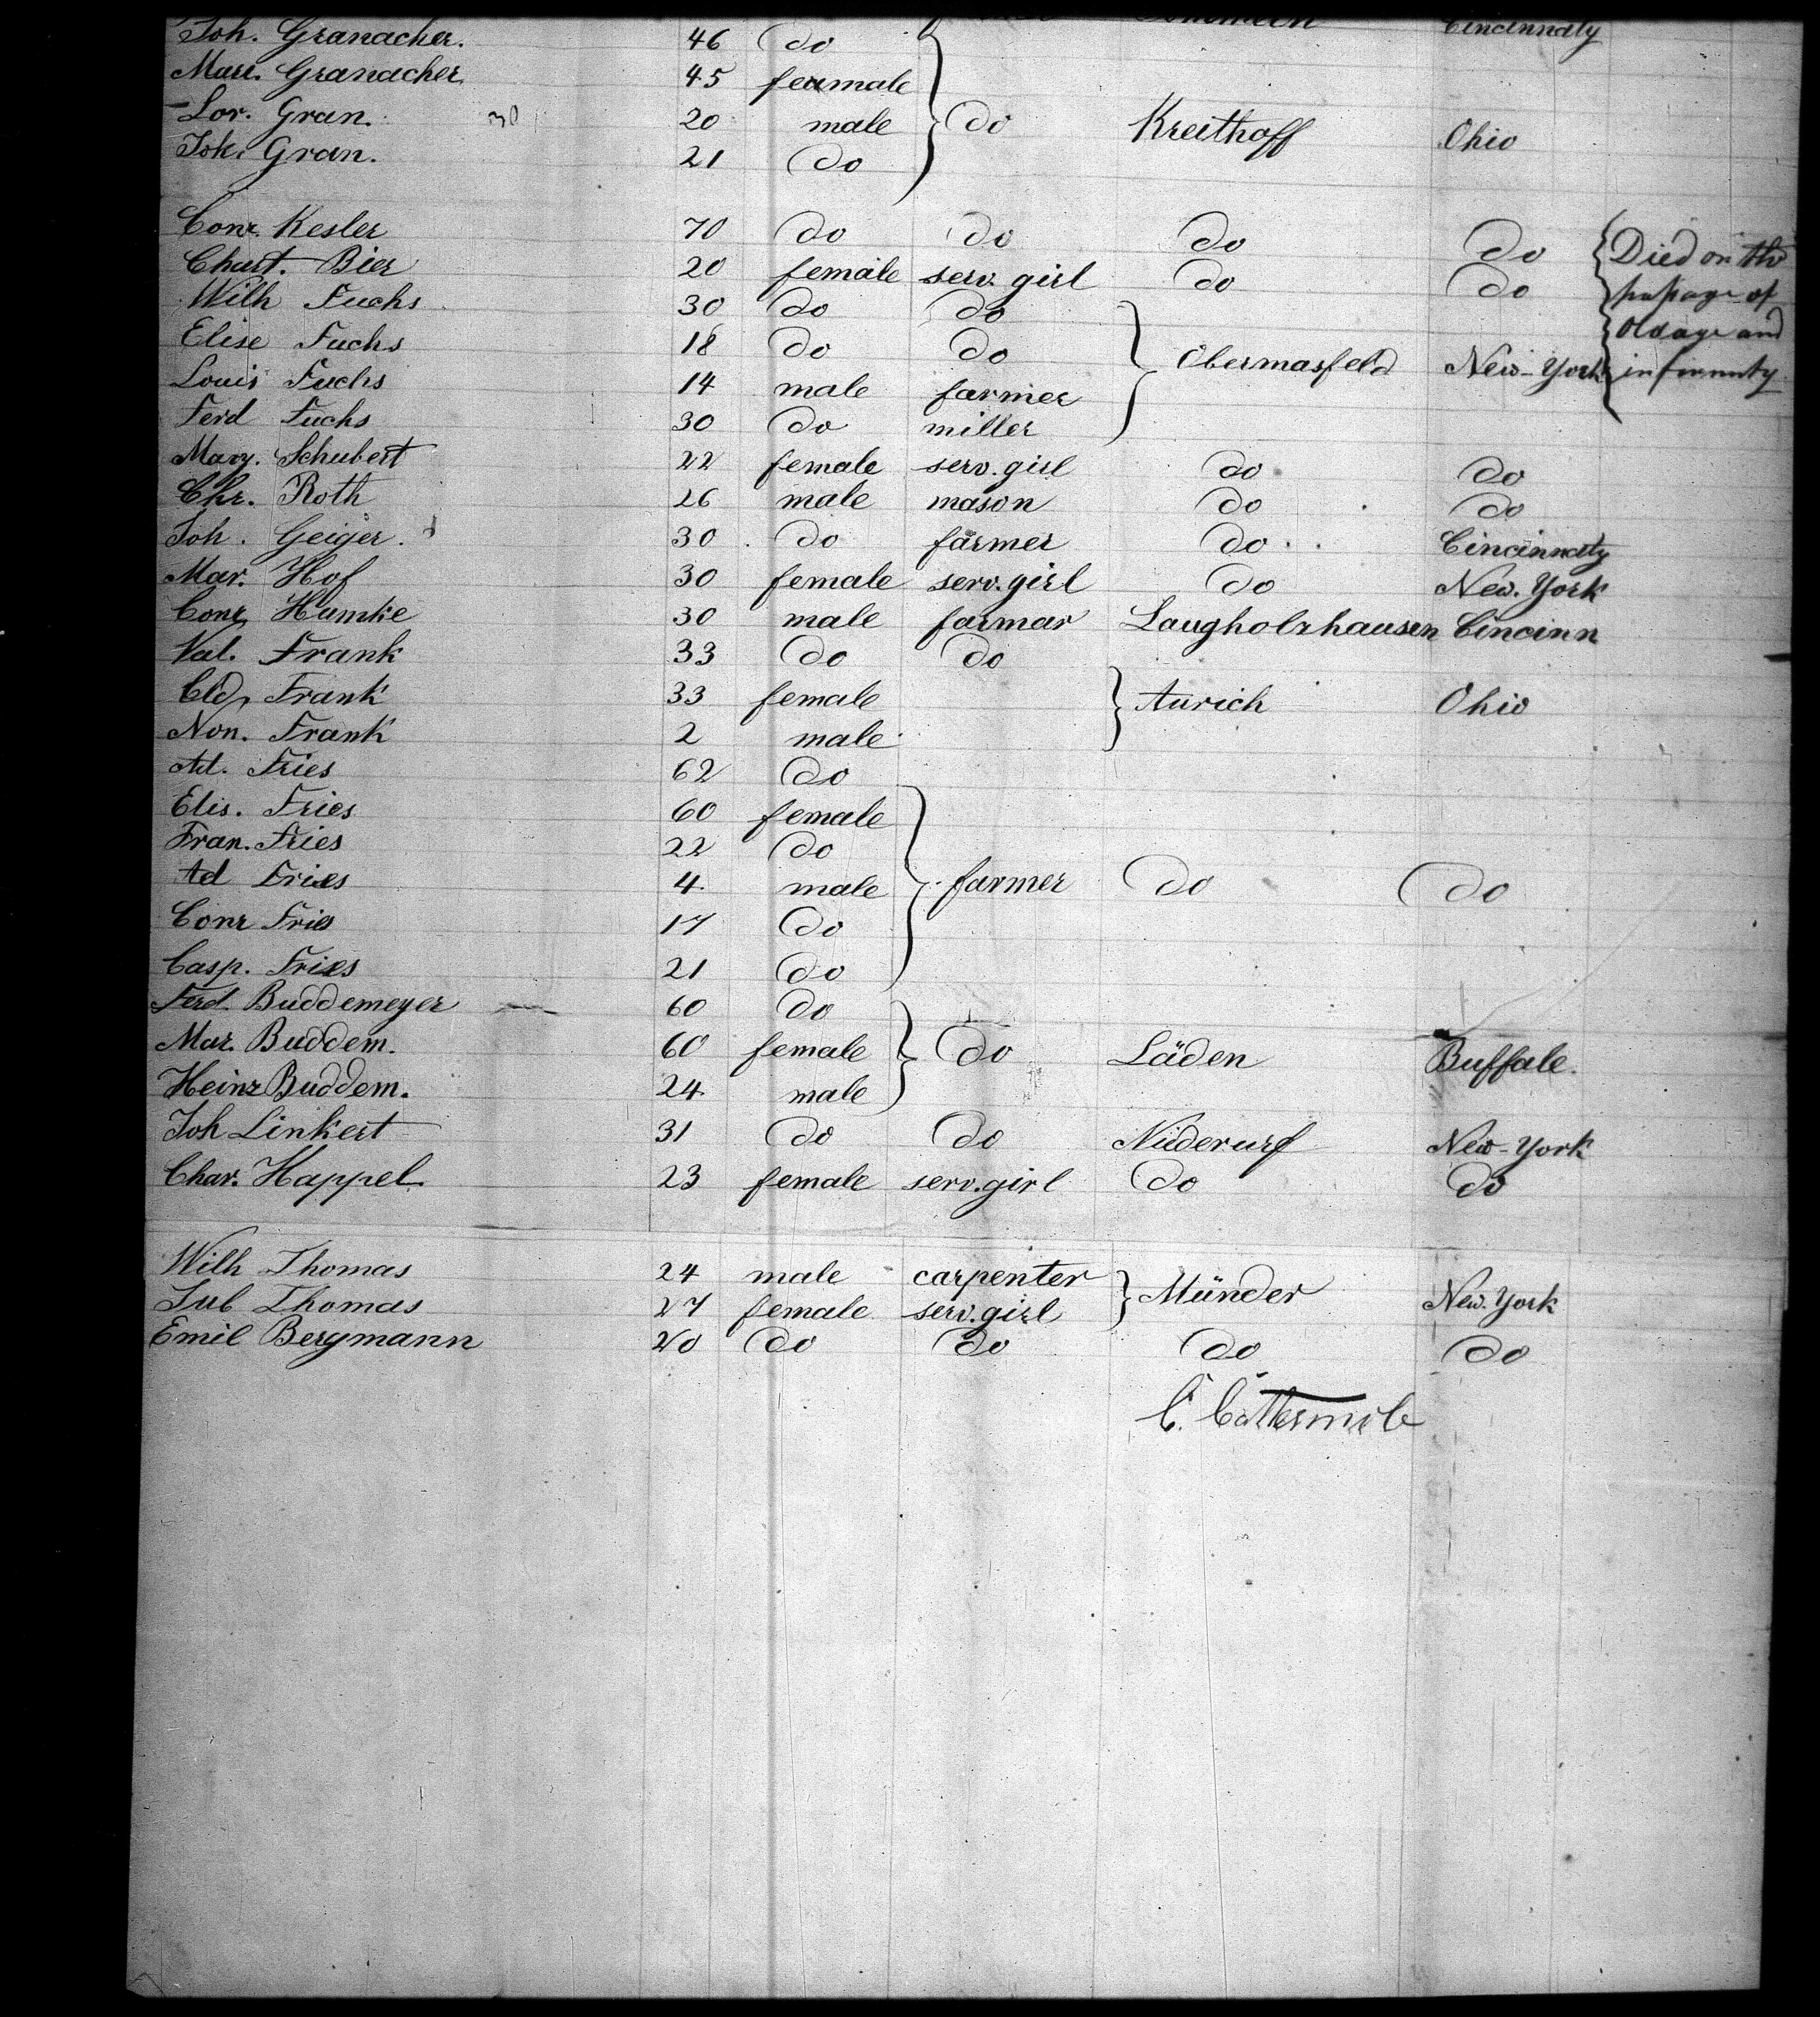 Cincinnaty
Joh. Granacher. 46 do
Mari. Granacher 45 female
Lor. Gran. 30 20 male do Kreithoff Ohio
Joh. Gran. 21 do
Conr. Kesler 70 do do do do Died on the
Chart. Bier 20 female serv. girl do do passage of
Wilh Fuchs 30 do do old age and
Elise Fuchs 18 do do Obermasfeld New-York infirmity
Louis Fuchs 14 male farmer
Ferd Fuchs 30 do miller
Mary. Schubert 22 female serv. girl do do
Chr. Roth 26 male mason do do
Joh. Geiger. 30 do farmer do Cincinnaty
Mar. Hof 30 female serv. girl do New. York
Conr Humke 30 male farmar Laugholzhausen Cincinn
Val. Frank 33 do do
Eld, Frank 33 female Aurich Ohio
Non. Frank 2 male
Ad. Fries 62 do
Elis. Fries 60 female
Fran. Fries 22 do
Ad Fries 4 male farmer do do
Conr Fries 17 do
Casp. Fries 21 do
Ferd. Buddemeyer 60 do
Mar. Buddem. 60 female do Läden Buffale.
Heinr Buddem. 24 male
Joh Linkert 31 do do Niederurf New-York
Char. Happel 23 female serv. girl do do
Wilh Thomas 24 male carpenter Münder New. York
Jub Thomas 27 female serv. girl
Emil Bergmann 20 do do do do